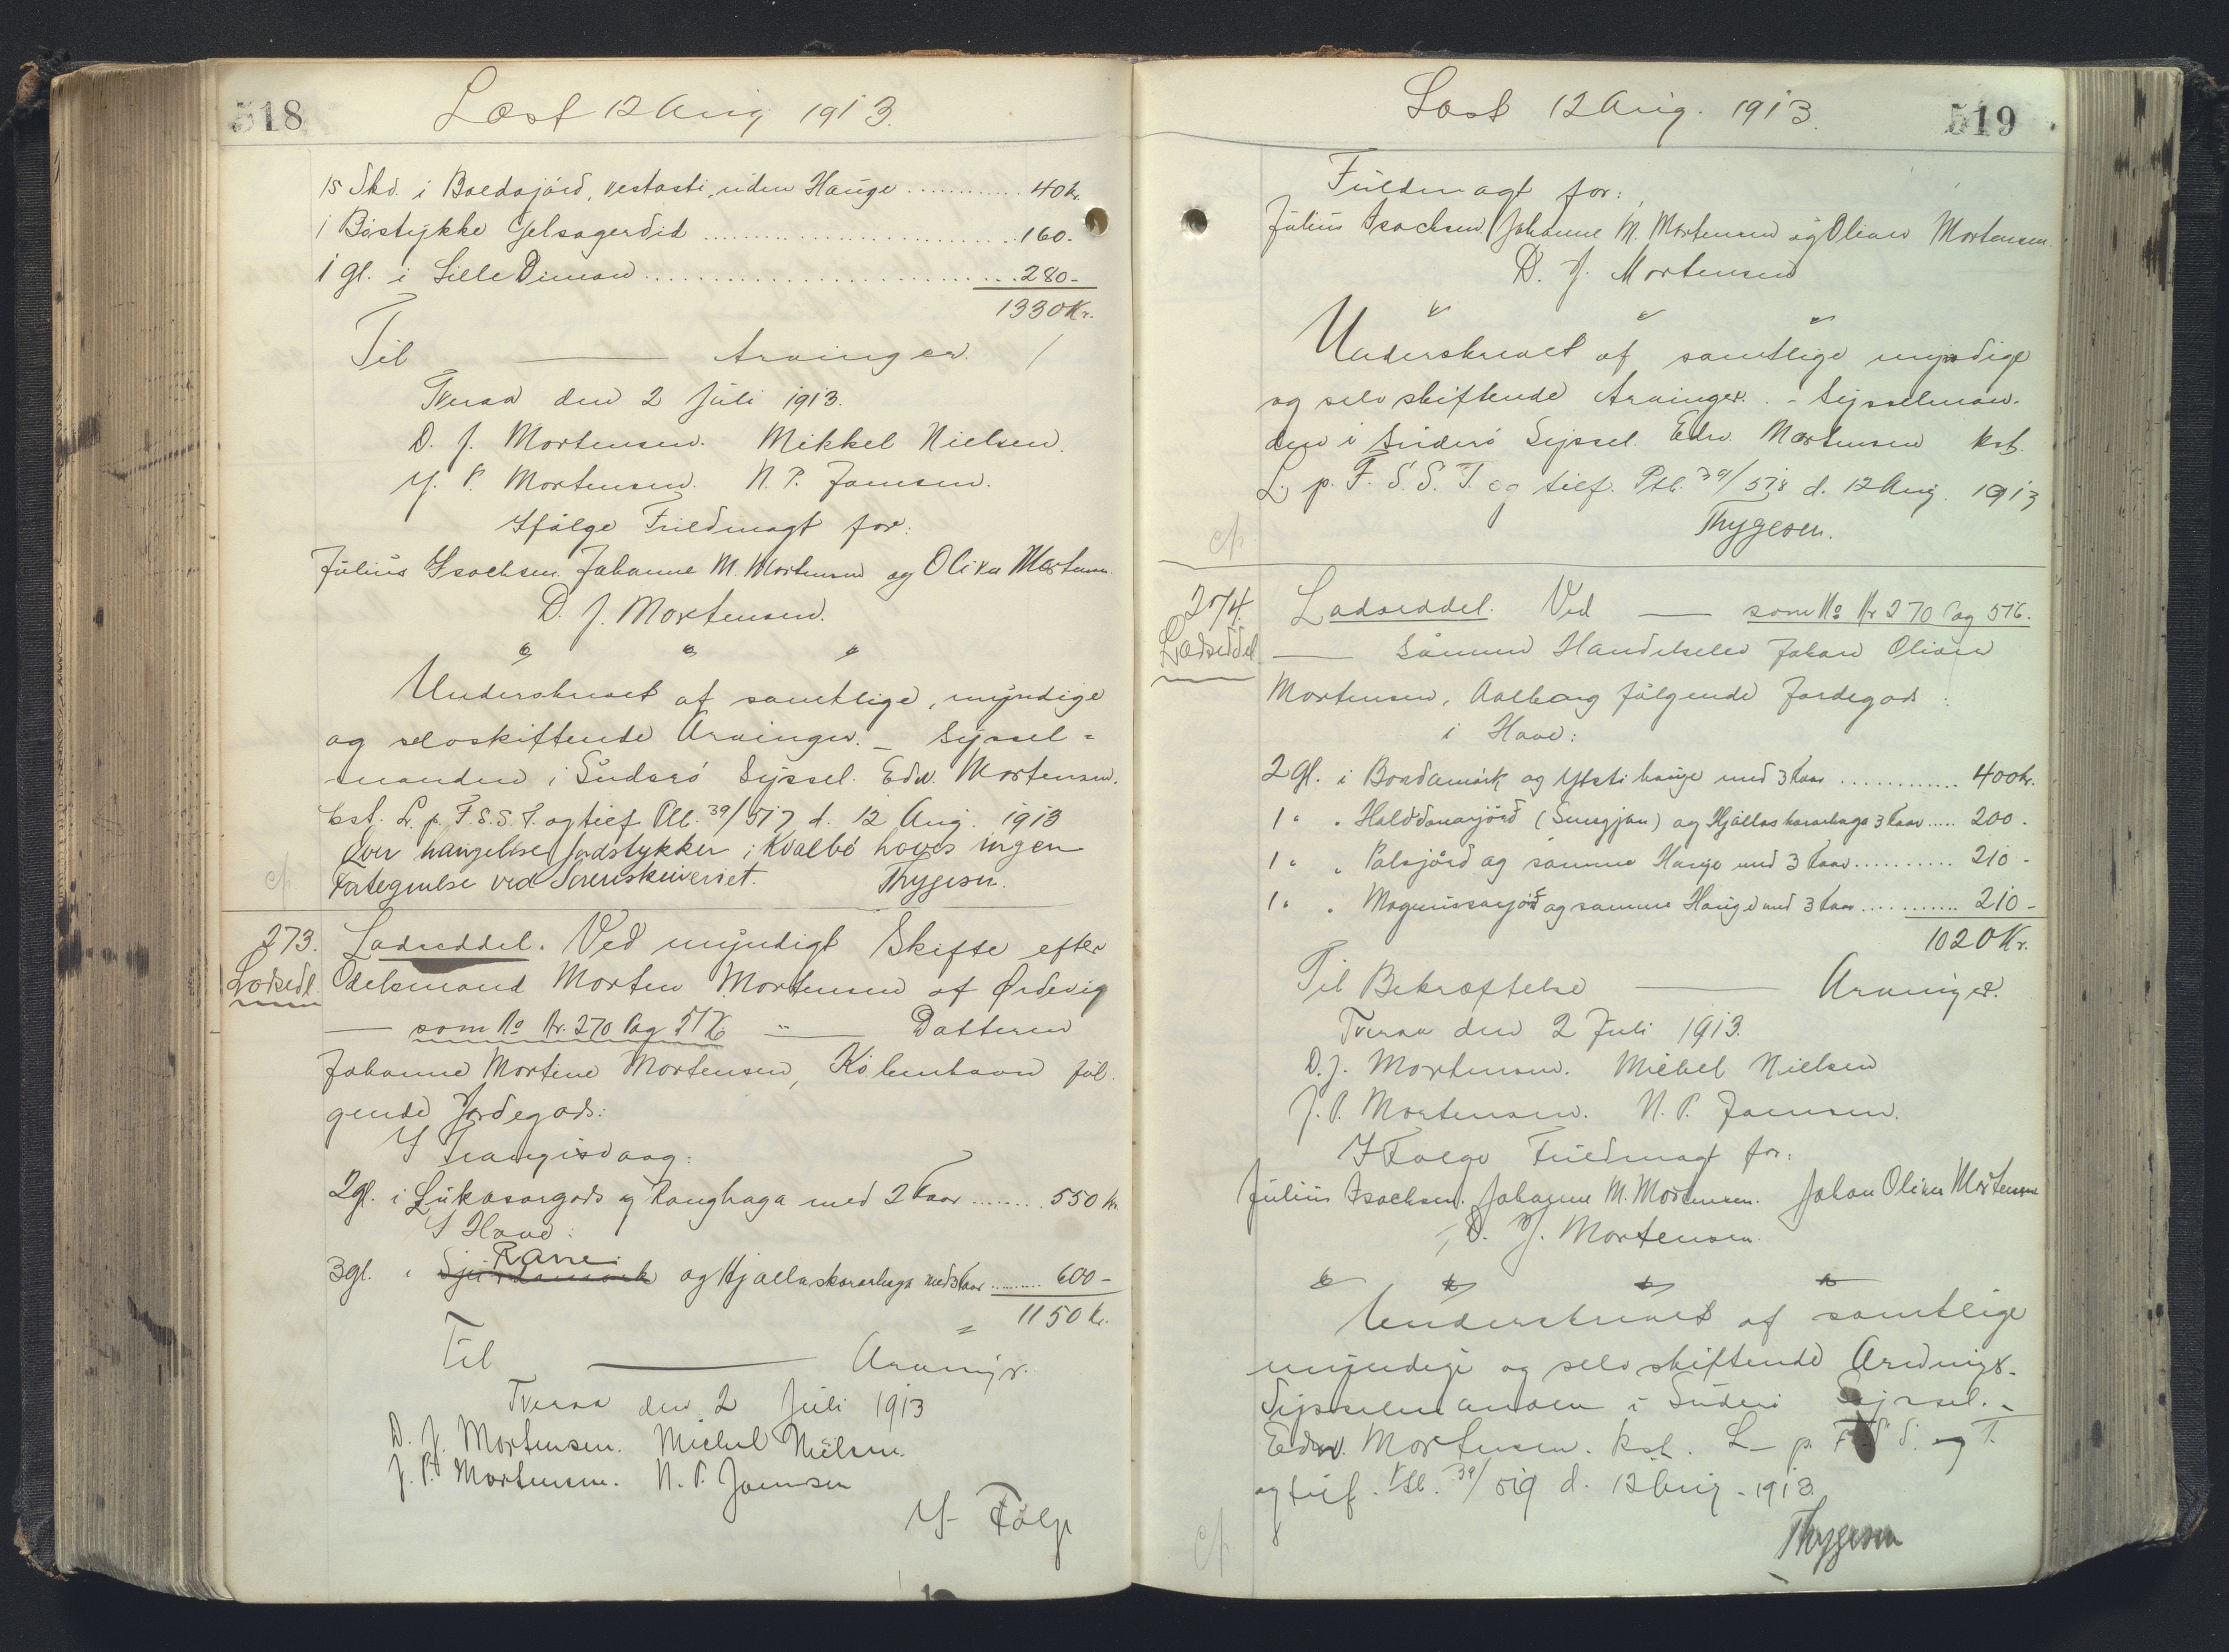 518
Læst 12 Aug 1913.
15 Skd. i Boedajørd, vestasti, uden Hauge ............ 40 kr.
1 Bøstykke Gelsagerdid ............ 160.-
1 gl. i Lille Dimon ............ 280-
1330 Kr.
Til — Arvinger.
Tveraa den 2 Juli 1913.
D. J. Mortensen. Mikkel Nielsen.
J. P. Mortensen. N. P. Joensen.
Ifølge Fuldmagt for:
Julius Isachsen. Johanne M. Mortensen og Oliver Mortensen.
D. J. Mortensen.
Underskrevet af samtlige, myndige
og selvskiftende Arvinger. – Syssel=
manden i Suderø Syssel. Edw. Mortensen.
kst. L. p. F. S. S. T. og tilf. Ptb. 39/517 d. 12 Aug. 1913
Over Jordstykker i Kvalbø haves ingen
Fortegnelse ved Sorenskriveriet. Thygesen.
273.
Lodsedl.
Lodseddel. Ved myndigt Skifte efter
Odelsmand Morten Mortensen af Ørdevig
— som No Nr. 270 Pag 516 — Datteren
Johanne Mortine Mortensen, København føl-
gende Jordegods:
I Trangisvaag:
2 gl. i Lukasargods og Ranghaga med 2 Faar ........ 550 kr.
I Hove:
Rane
3 gl. i og Hjallaskorarhaga med 3 Faar ........ 600-
1150 kr.
Til — Arvinger.
Tveraa den 2 Juli 1913
D. J. Mortensen. Michel Nielsen.
J. P. Mortensen. N. P. Joensen
If Følge
519
Læst 12 Aug. 1913.
Fuldmagt for:
Julius Isachsen. Johanne M. Mortensen og Oliver Mortensen.
D. J. Mortensen
Underskrevet af samtlige myndige
og selvskiftende Arvinger. – Sysselman-
den i Suderø Syssel. Edw. Mortensen kst.
L. p. F. S. S. T. og tilf. Ptb. 39/518 d. 12 Aug. 1913
Thygesen.
274.
Lodseddel
Lodseddel. Ved — som No Nr 270 Pag 516.
— Sønnen Handelselev Johan Oliver
Mortensen, Aalborg følgende Jordegods:
i Hove:
2 gl. i Bondamørk og Ytsti hauge med 3 Faar ............ 400 kr.
1 " " Halddanarjørd og Hjallaskorarhaga 3 Faar ..... 200.
1 " " Palsjørd og samme Hauge med 3 Faar .......... 210-
1 " " Magnussarjørd og samme Hauge med 3 Faar ........... 210-
1020 Kr.
Til Bekræftelse — Arvinger.
Tveraa den 2 Juli 1913.
D. J. Mortensen. Michel Nielsen
J. P. Mortensen. N. P. Joensen.
I Følge Fuldmagt for:
Julius Isachsen. Johanne M. Mortensen. Johan Oliver Mortensen
D. J. Mortensen.
Underskrevet af samtlige
myndige og selvskiftende Arvinger.
Sysselmanden i Suderø Syssel. –
Edw. Mortensen. kst. L. p. F. S. S. og T.
og tilf. Ptb. 39/519 d. 12 Aug. 1913
Thygesen